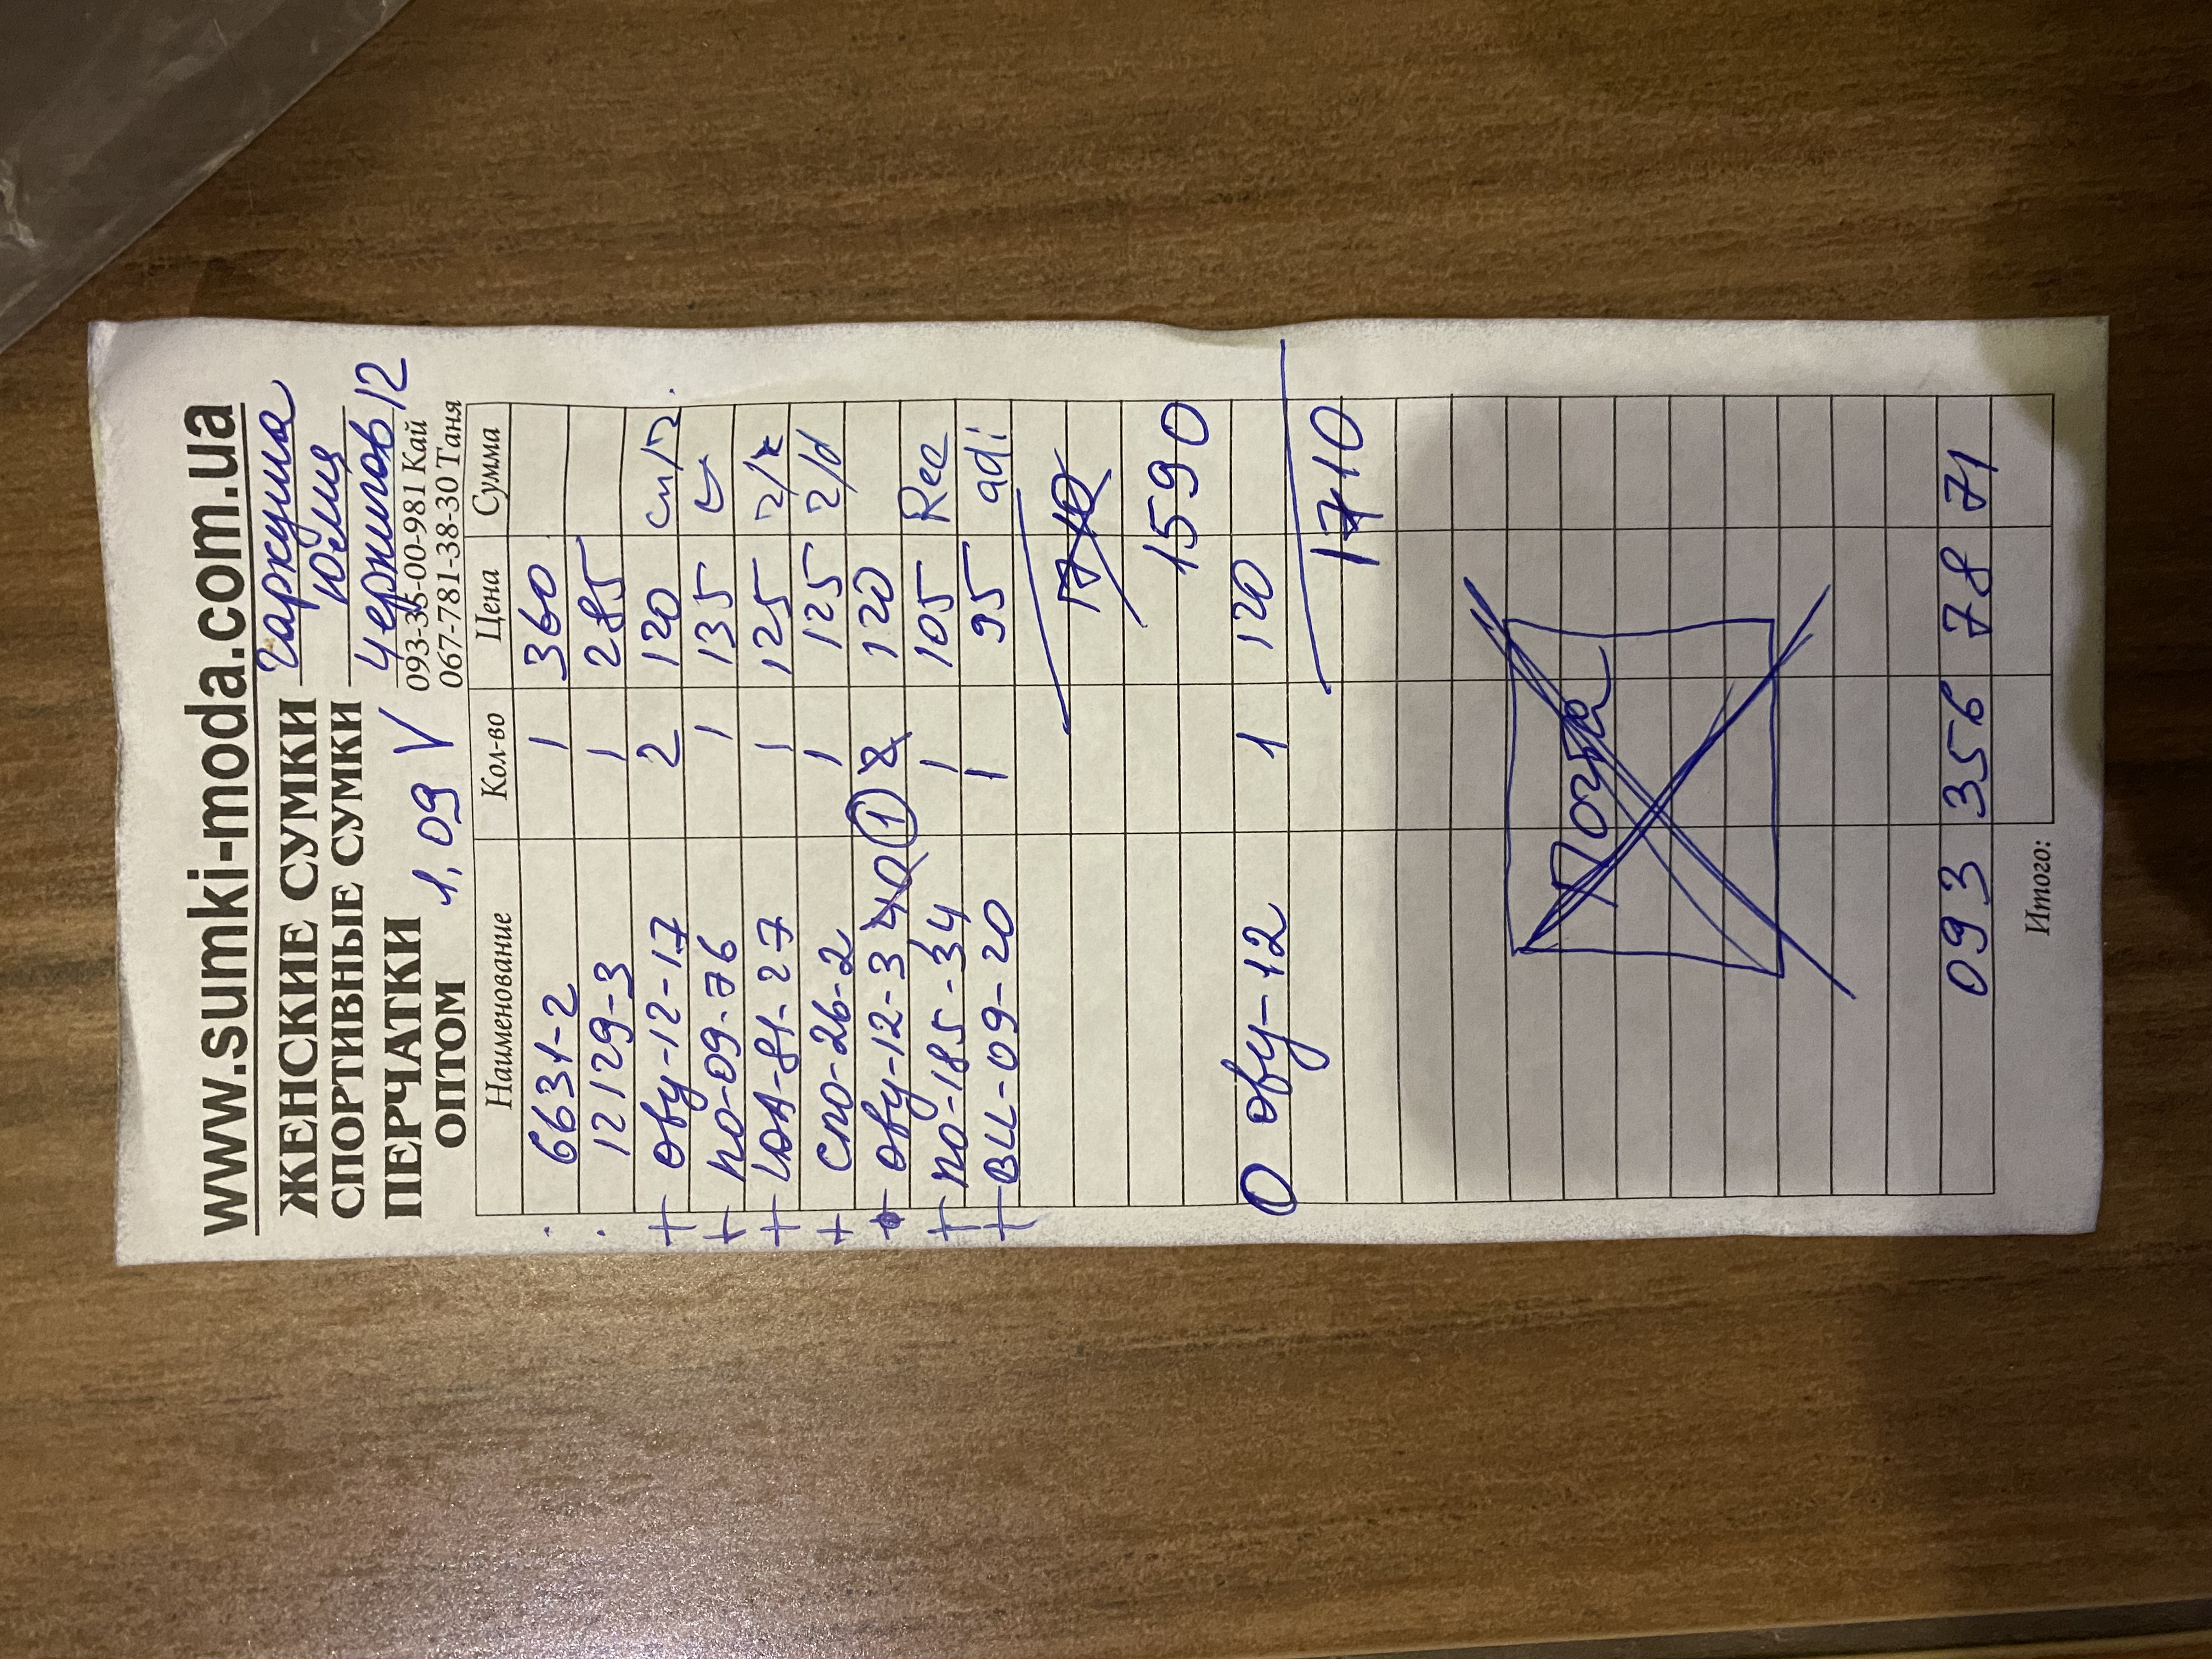 www.sumki-moda.com.ua
ЖЕНСКИЕ СУМКИ Гаркуша
СПОРТИВНЫЕ СУМКИ Юлия
ПЕРЧАТКИ 1,09 V Чернигов 12
ОПТОМ 093-35-00-981 Кай
067-781-38-30 Таня
Наименование Кол-во Цена Сумма
6631-2 1 360
12129-3 1 285
+ ову-12-17 2 120 сп/п.
+ по-09-76 1 135
+ юа-81-27 1 125 2/к
+ спо-26-2 1 125 2/d
+ ову-12-3 40 1 2 120
+ по-185-34 1 105 Ree
+ вц-09-20 1 95 adi
1710
1590
0 ову-12 1 120
1710
093 356 78 71
Итого: